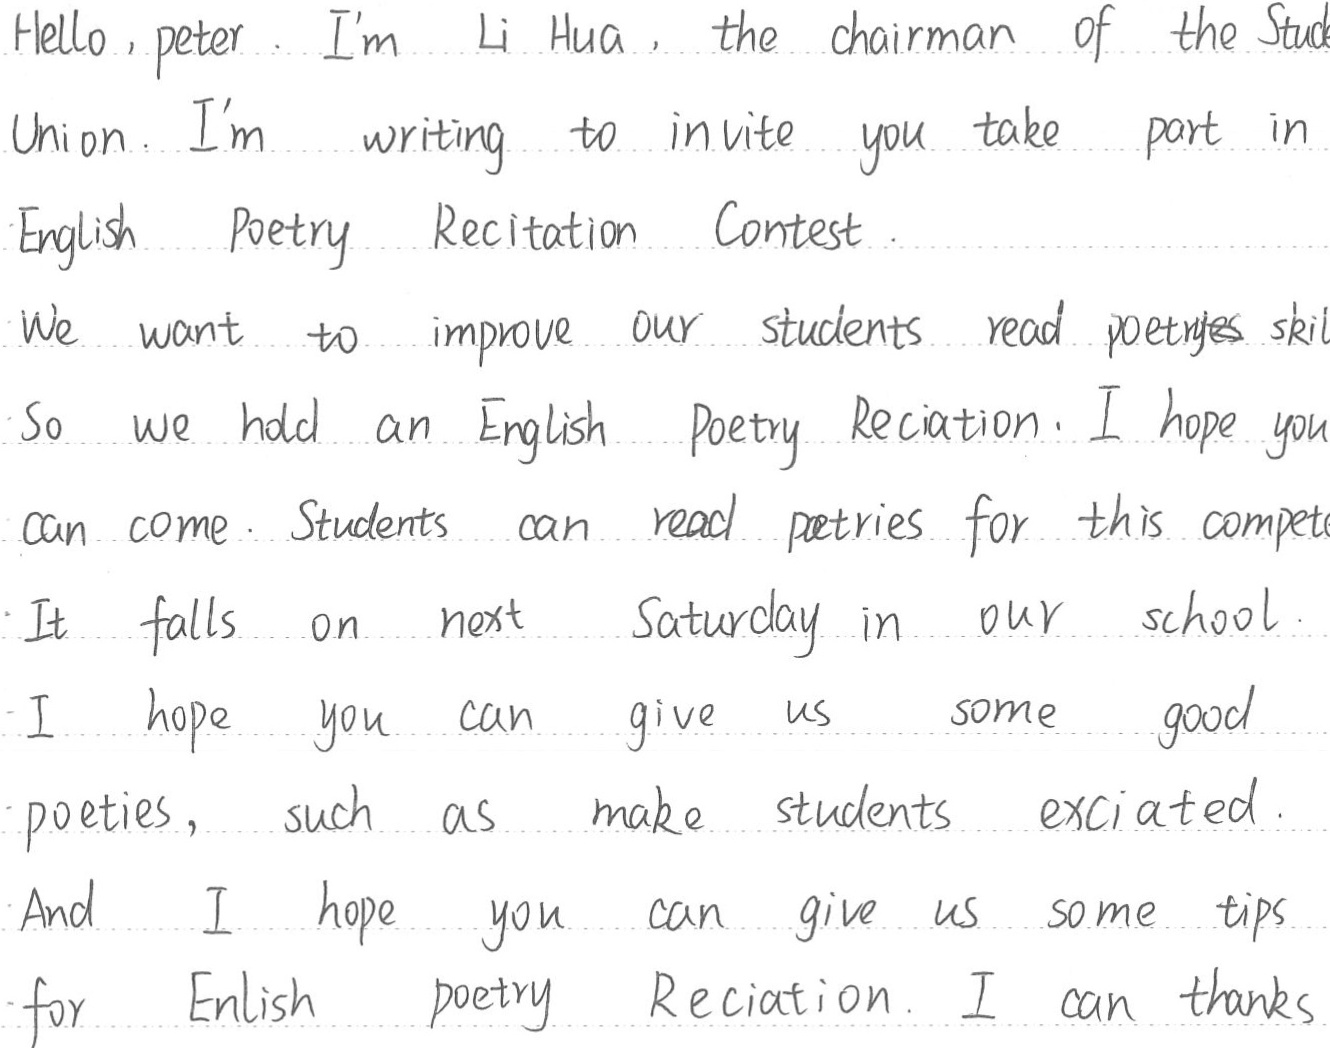 Hello, peter. I'm Li Hua, the chairman of the
Union. I'm writing to invite you take part in
English Poetry Recitation Contest.
We want to improve our students read poetryes
So we hold an English Poetry Reciation. I hope you
can come. Students can read poetries for this
It falls on next Saturday in our school.
I hope you can give us some good
poeties, such as make students exciated.
And I hope you can give us some tips
for Enlish poetry Reciation. I can thanks